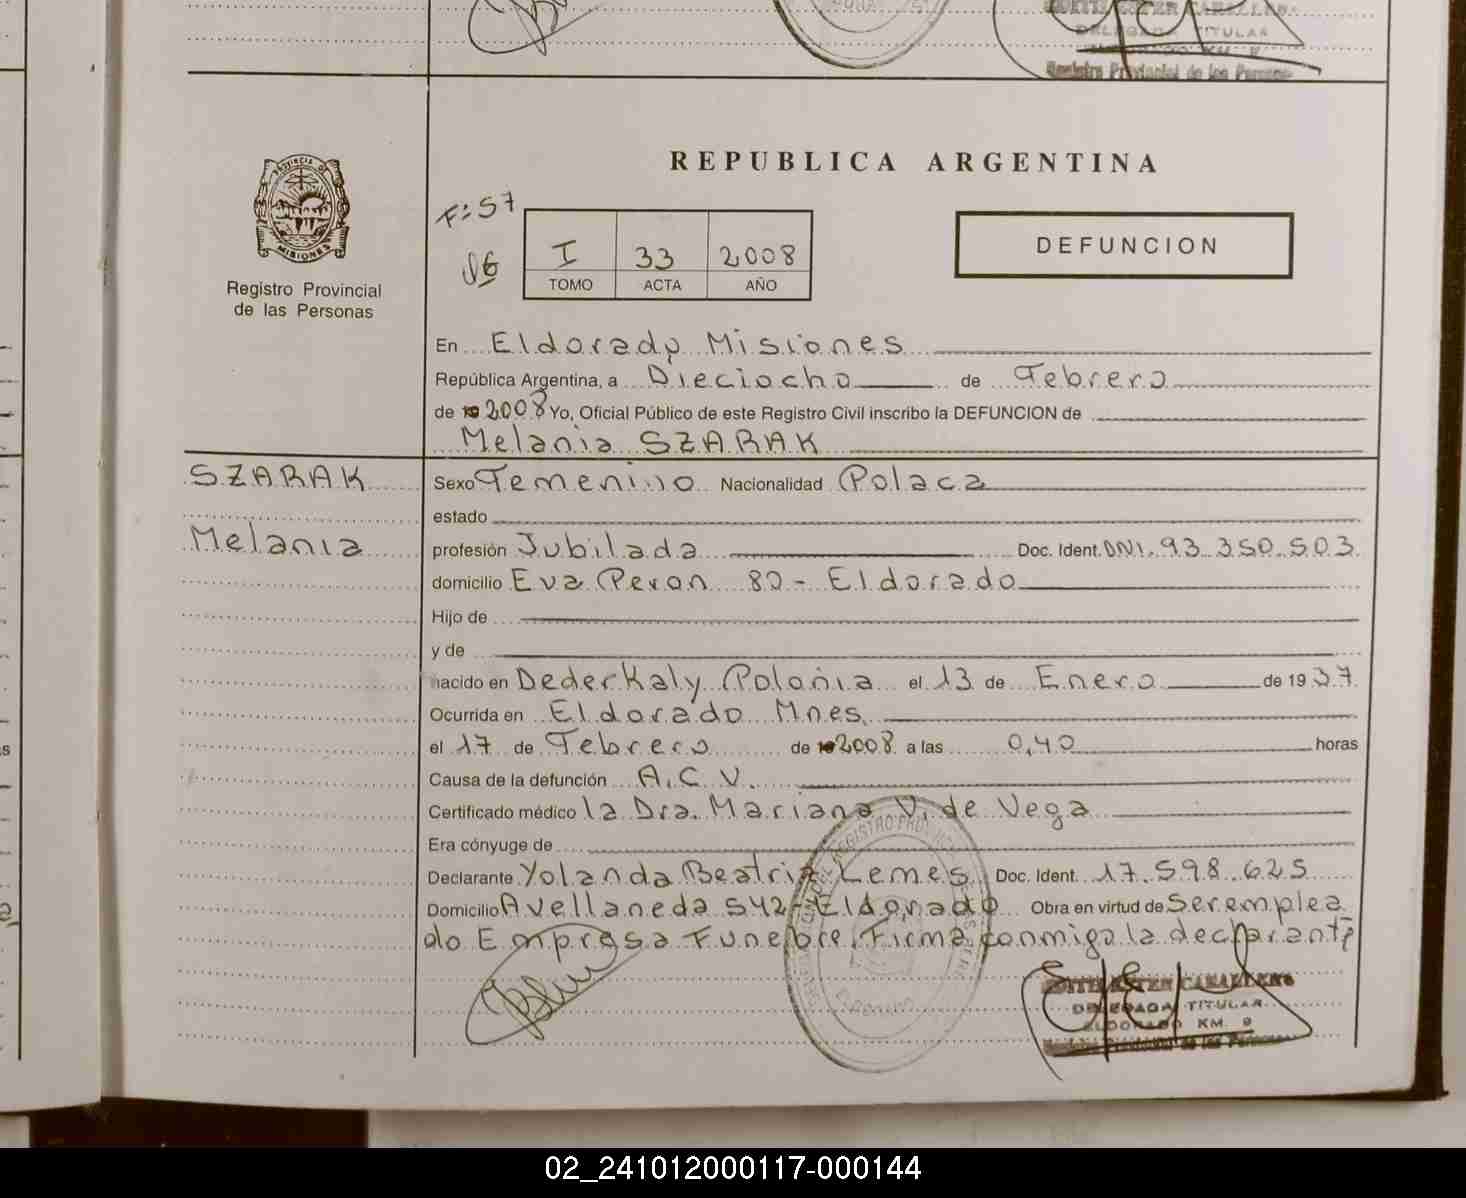 DELEGADA TITULAR
Registro Provincial de las Personas
PROVINCIA DE
MISIONES
Registro Provincial
de las Personas
REPUBLICA ARGENTINA
F: 57
I 33 2008
TOMO ACTA AÑO
DEFUNCION
En Eldorado, Misiones
República Argentina, a Dieciocho de Febrero
de 19 2008 Yo, Oficial Público de este Registro Civil inscribo la DEFUNCION de
Melania SZARAK
SZARAK
Melania
Sexo Femenino Nacionalidad Polaca
estado
profesión Jubilada Doc. Ident. DNI. 93.350.503
domicilio Eva Peron 82 - Eldorado
Hijo de
y de
nacido en Dederkaly Polonia el 13 de Enero de 1937
Ocurrida en Eldorado Mnes.
el 17 de Febrero de 19 2008 a las 0,40 horas
Causa de la defunción A.C.V.
Certificado médico la Dra. Mariana V. de Vega
Era cónyuge de
Declarante Yolanda Beatriz Lemes Doc. Ident. 17.598.625
Domicilio Avellaneda 542 - Eldorado Obra en virtud de Ser emplea
do Empresa Funebre. Firma conmigo la declarante
REGISTRO PROVINCIAL
ELDORADO
EDITH ESTER CABALLERO
DELEGADA TITULAR
ELDORADO KM. 9
Registro Provincial de las Personas
02_241012000117-000144